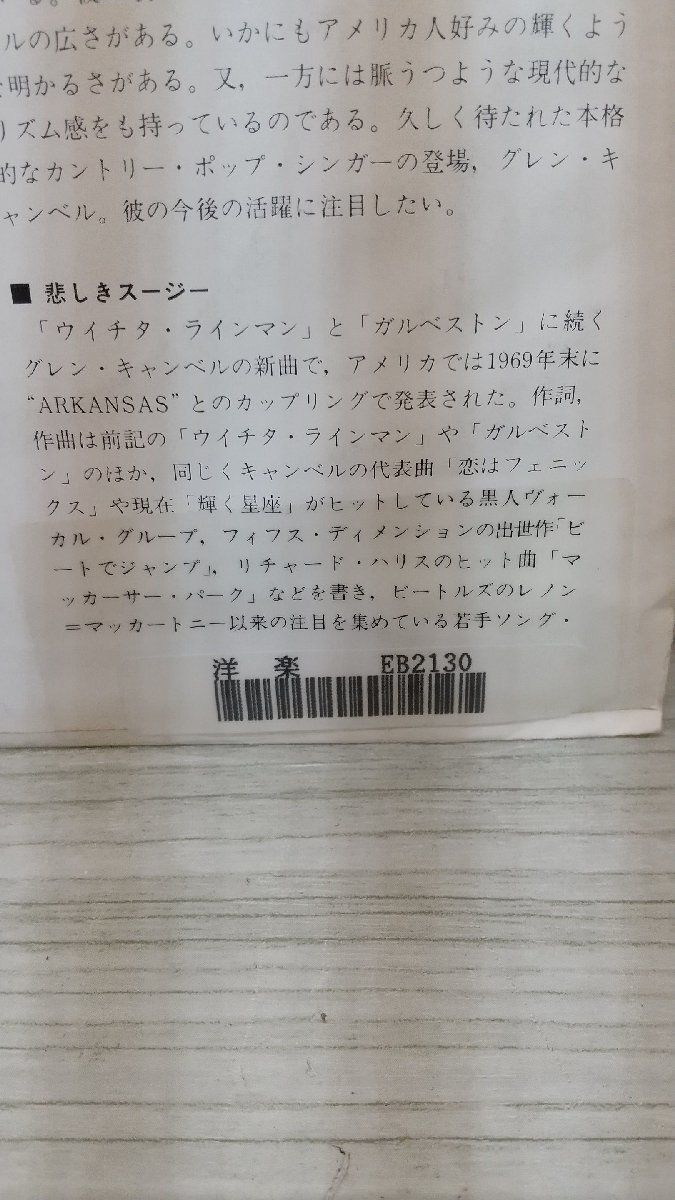 ルの広さがある。いかにもアメリカ人好みの輝くよう
明かるさがある。又，一方には脈うつような現代的な
リズム感をも持っているのである。久しく待たれた本格
的なカントリー・ポップ・シンガーの登場，グレン・キ
ャンベル。彼の今後の活躍に注目したい。
■ 悲しきスージー
「ウイチタ・ラインマン」と「ガルベストン」に続く
グレン・キャンベルの新曲で，アメリカでは1969年末に
“ARKANSAS”とのカップリングで発表された。作詞，
作曲は前記の「ウイチタ・ラインマン」や「ガルベスト
ン」のほか，同じくキャンベルの代表曲「恋はフェニッ
クス」や現在「輝く星座」がヒットしている黒人ヴォー
カル・グループ，フィフス・ディメンションの出世作「ビ
ートでジャンプ」，リチャード・ハリスのヒット曲「マ
ッカーサー・パーク」などを書き，ビートルズのレノン
＝マッカートニー以来の注目を集めている若手ソング・
洋 楽 EB2130